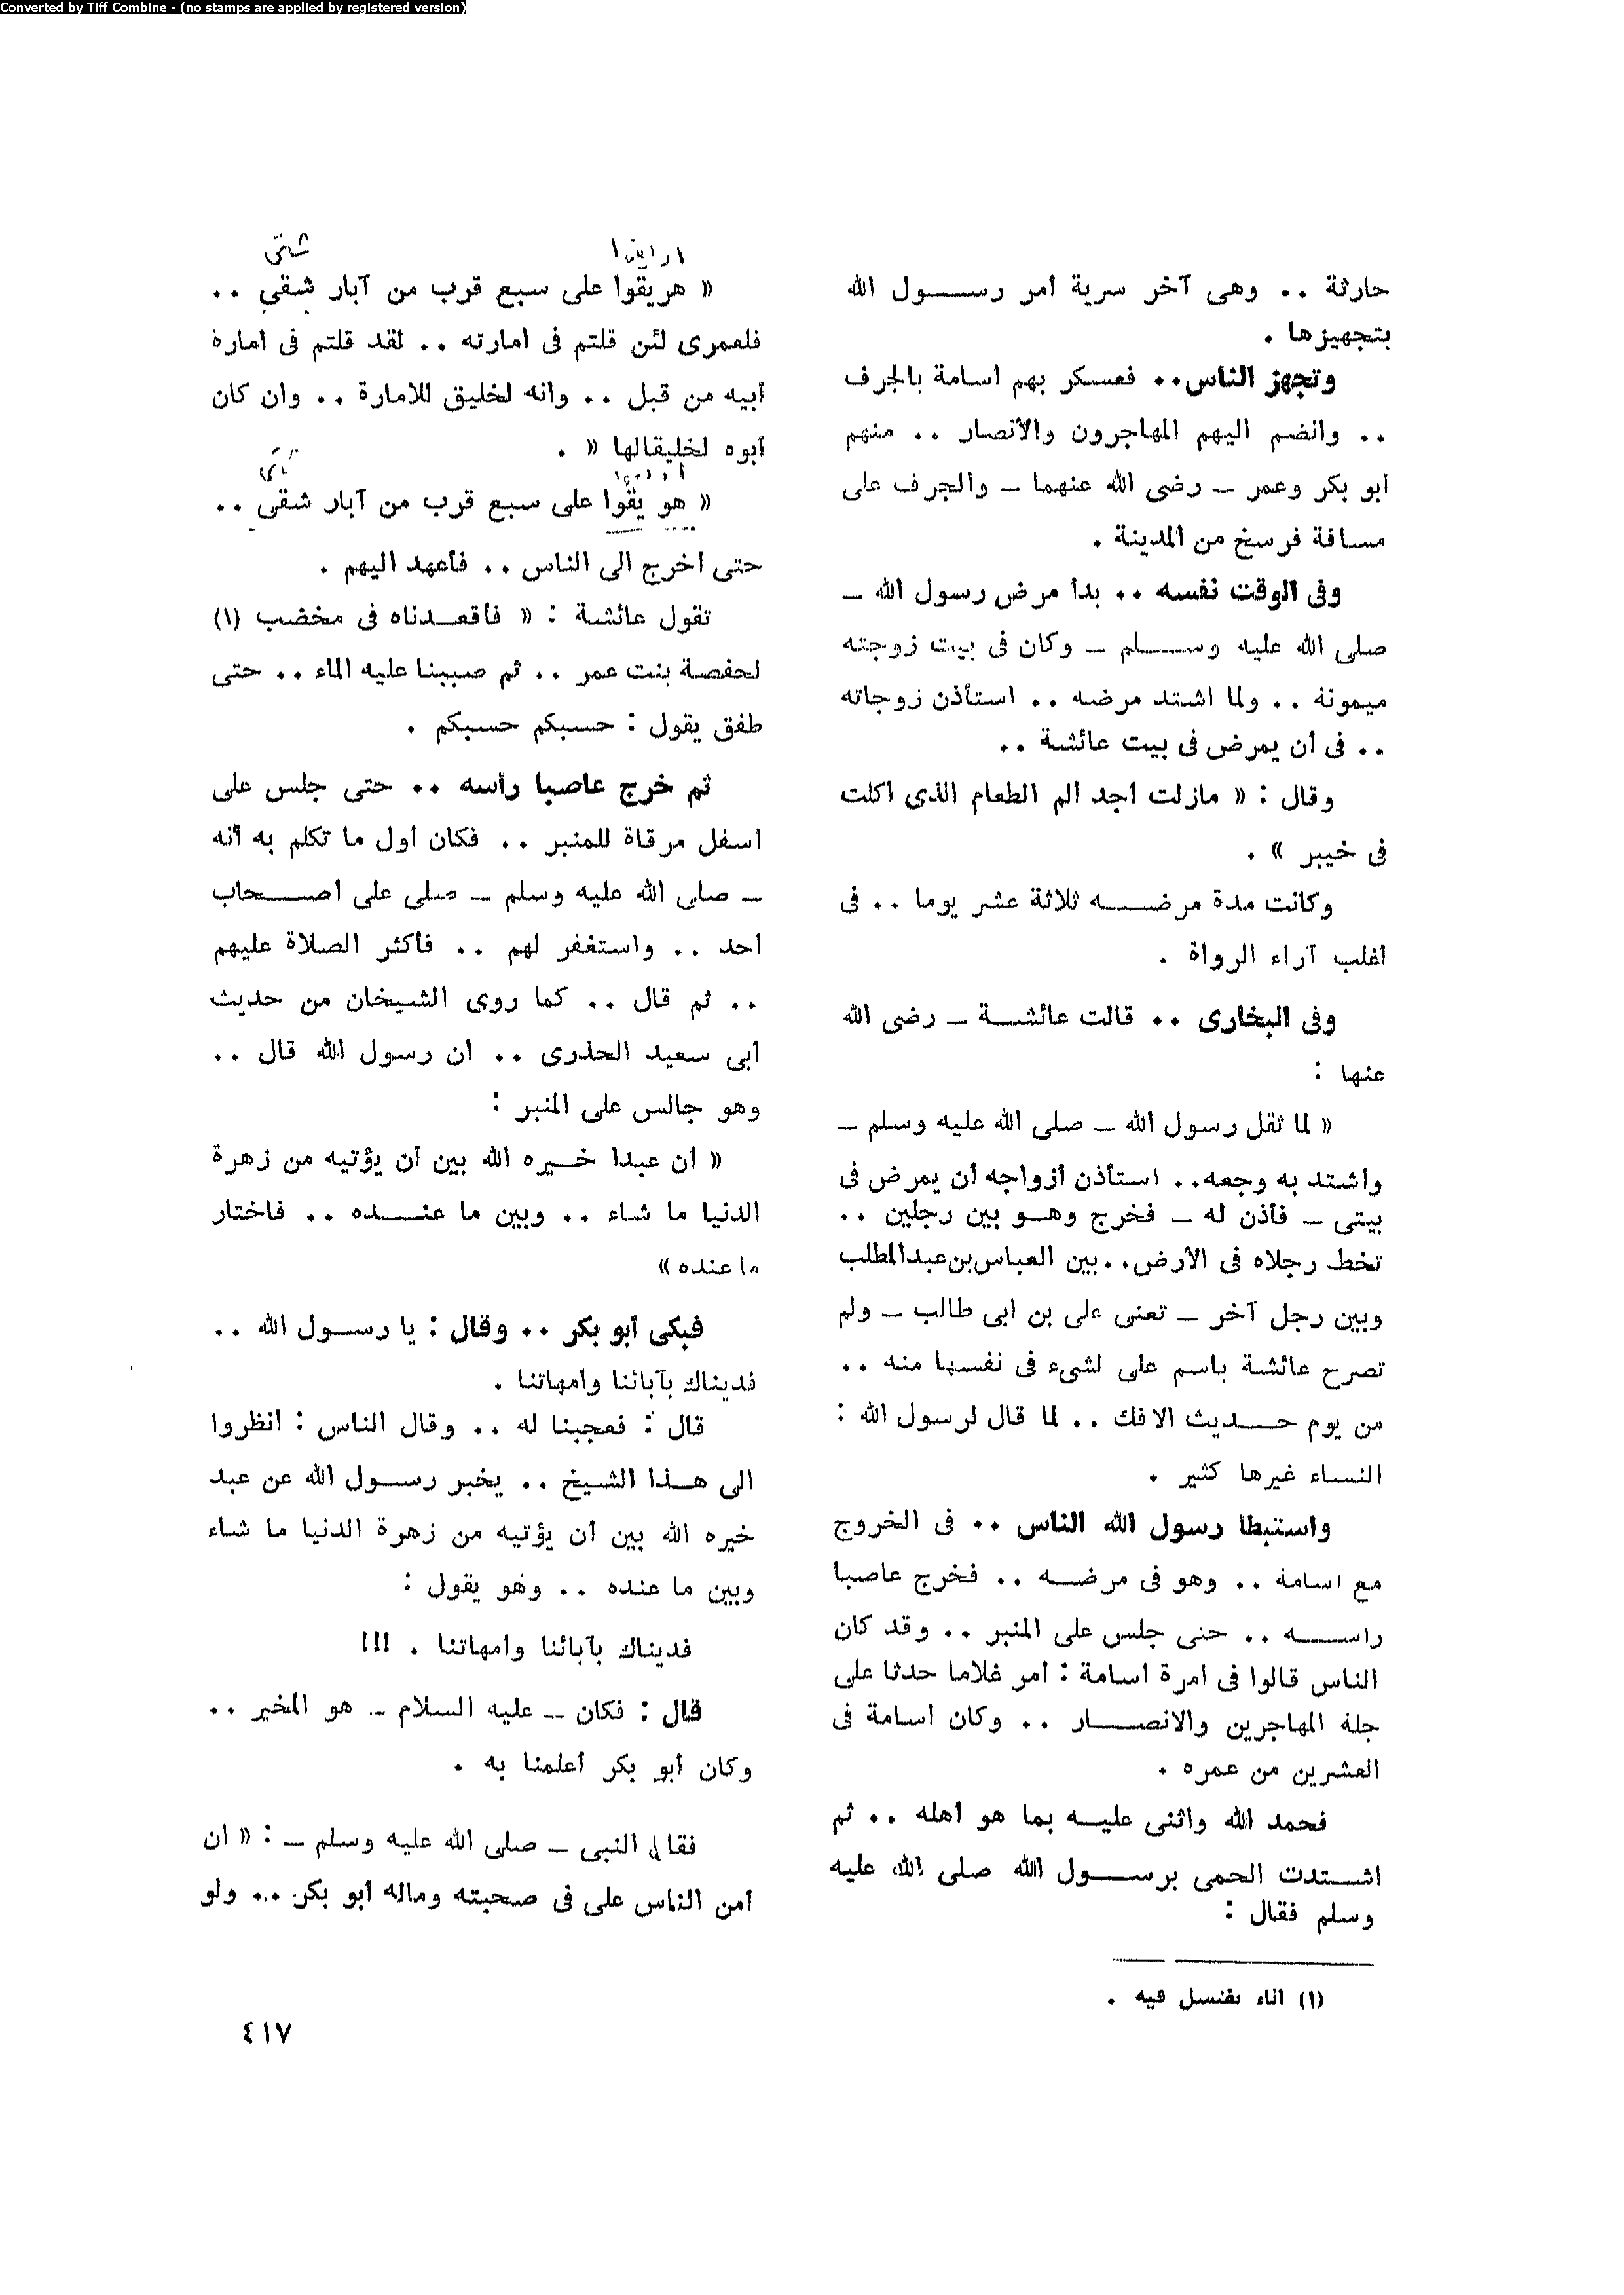 Converted by Tiff Combine - (no stamps are applied by registered version)
حارثة .. وهى آخر سرية أمر رسول الله
بتجهيزها .
وتجهز الناس.. فعسكر بهم أسامة بالجرف
.. وانضم اليهم المهاجرون والأنصار .. منهم
أبو بكر وعمر – رضى الله عنهما – والجرف على
مسافة فرسخ من المدينة .
وفى الوقت نفسه .. بدأ مرض رسول الله –
صلى الله عليه وسلم – وكان فى بيت زوجته
ميمونة .. ولما اشتد مرضه .. استأذن زوجاته
.. فى أن يمرض فى بيت عائشة ..
وقال : « مازلت أجد ألم الطعام الذى أكلت
فى خيبر » .
وكانت مدة مرضه ثلاثة عشر يوما .. فى
أغلب آراء الرواة .
وفى البخارى .. قالت عائشة – رضى الله
عنها :
« لما ثقل رسول الله – صلى الله عليه وسلم –
واشتد به وجعه.. استأذن أزواجه أن يمرض فى
بيتى – فأذن له – فخرج وهو بين رجلين ..
تخط رجلاه فى الأرض.. بين العباس بن عبدالمطلب
وبين رجل آخر – تعنى على بن ابى طالب – ولم
تصرح عائشة باسم على لشىء فى نفسها منه ..
من يوم حديث الافك .. لما قال لرسول الله :
النساء غيرها كثير .
واستبطأ رسول الله الناس .. فى الخروج
مع اسامة .. وهو فى مرضه .. فخرج عاصبا
راسه .. حتى جلس على المنبر .. وقد كان
الناس قالوا فى امرة أسامة : أمر غلاما حدثا على
جلة المهاجرين والانصار .. وكان أسامة فى
العشرين من عمره .
فحمد الله واثنى عليه بما هو أهله .. ثم
اشتدت الحمى برسول الله صلى الله عليه
وسلم فقال :
(١) اناء يغتسل فيه .
« هريقوا على سبع قرب من آبار شقى ..
فلعمرى لئن قلتم فى امارته .. لقد قلتم فى امارة
أبيه من قبل .. وانه لخليق للامارة .. وان كان
أبوه لخليقالها « .
« هو يقوا على سبع قرب من آبار شقى ..
حتى أخرج الى الناس .. فأعهد اليهم .
تقول عائشة : « فأقعدناه فى مخضب (١)
لحفصة بنت عمر .. ثم صببنا عليه الماء .. حتى
طفق يقول : حسبكم حسبكم .
ثم خرج عاصبا رأسه .. حتى جلس على
أسفل مرقاة للمنبر .. فكان أول ما تكلم به أنه
– صلى الله عليه وسلم – صلى على أصحاب
أحد .. واستغفر لهم .. فأكثر الصلاة عليهم
.. ثم قال .. كما روى الشيخان من حديث
أبى سعيد الحذرى .. ان رسول الله قال ..
وهو جالس على المنبر :
« أن عبدا خيره الله بين أن يؤتيه من زهرة
الدنيا ما شاء .. وبين ما عنده .. فاختار
ما عنده »
فبكى أبو بكر .. وقال : يا رسول الله ..
فديناك بآبائنا وأمهاتنا .
قال : فعجبنا له .. وقال الناس : أنظروا
الى هذا الشيخ .. يخبر رسول الله عن عبد
خيره الله بين أن يؤتيه من زهرة الدنيا ما شاء
وبين ما عنده .. وهو يقول :
فديناك بآبائنا وامهاتنا . !!!
قال : فكان – عليه السلام – هو المخير ..
وكان أبو بكر أعلمنا به .
فقال النبى – صلى الله عليه وسلم – : « ان
أمن الناس على فى صحبته وماله أبو بكر .. ولو
٤١٧